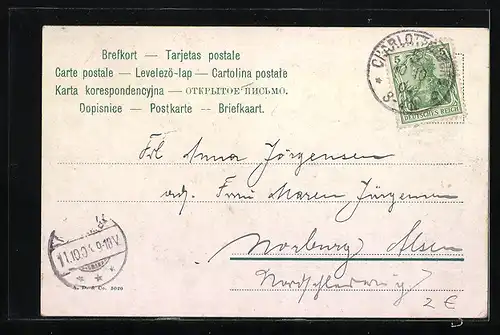 Brefkort — Tarjetas postale
Carte postale — Levelező-lap — Cartolina postale
Karta korespondencyjna — ОТКРЫТОЕ ПИСЬМО.
Dopisnice — Postkarte -- Briefkaart.
CHARLOTTEN
5 5
DEUTSCHES REICH
Frl Anna Jörgensen
Frau Maren Jürgensen
Norburg Alsen
Nordschleswig
2 €
11.10.0 9-10V